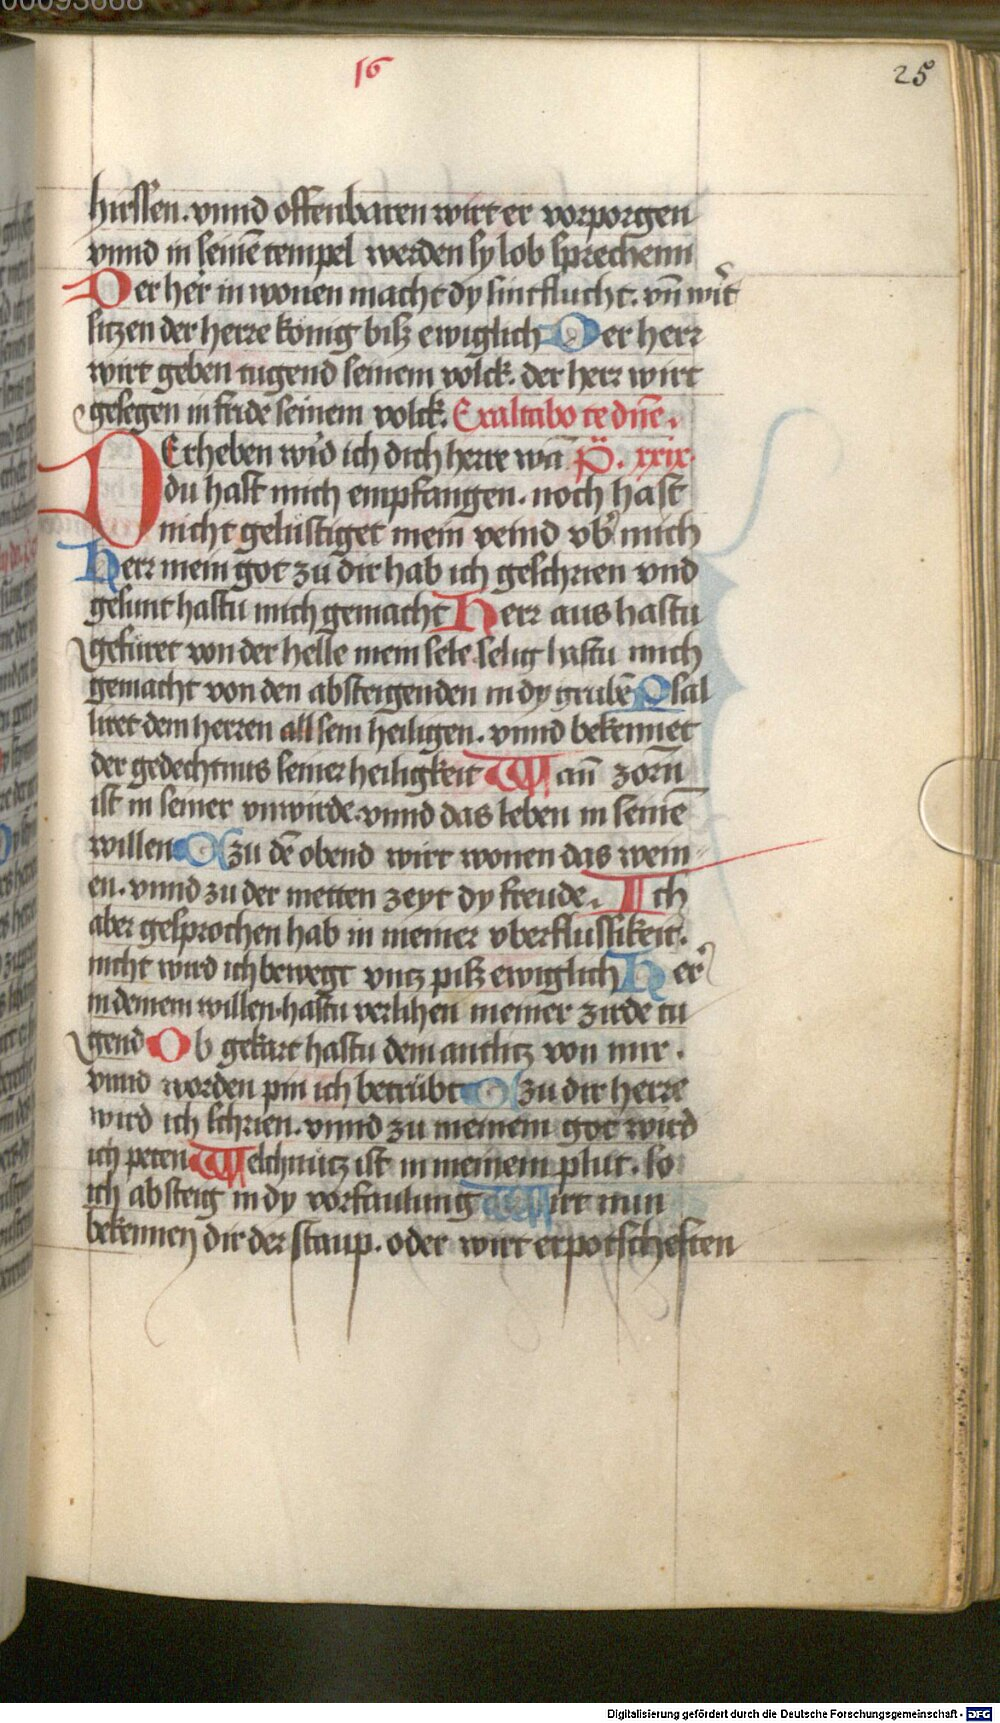 00093668
16
25
hirssen. vnnd offenbaren wirt er vorporgen
vnnd in seinē tempel werden sy lob sprechenn
Der her in wonen macht dy sintflucht. vn̄ wir̄t
sitzen der herre konig bisz ewiglich Der herr
wirt geben tugend seinem volck. der herr wirt
gesegen in fride seinem volck. Exaltabo te dn̄e.
DErheben wi'd ich dich herre wan̄ P̄. xxix.
du hast mich empfangen. noch hast
nicht gelustiget mein veind vb' mich
Herr mein got zu dir hab ich geschrien vnd
gesunt hastu mich gemacht Herr aus hastu
gefuret von der helle mein sele selig hastu mich
gemacht von den absteigenden in dy grubē Psal
liret dem herren all sein heiligen. vnnd bekennet
der gedechtnus seiner heiligkeit Wan̄ zorn
ist in seiner vnwirde. vnnd das leben in seinē
willen O zu dē obend wirt wonen das wein
en. vnnd zu der metten zeyt dy freude. Ich
aber gesprochen hab in meiner vberflussikeit.
nicht wird ich bewegt vntz pisz ewiglich Her'
in deinem willen. hastu verlihen meiner zirde tu
gend Ob gekart hastu dein antlitz von mir.
vnnd worden pin ich betrubt O zu dir herre
wird ich schrien. vnnd zu meinem got wird
ich peten Welch nutz ist in meinem plut. so
ich absteig in dy vorfaulung Wirt nun
bekennen dir der staup. oder wirt erpotscheften
Digitalisierung gefördert durch die Deutsche Forschungsgemeinschaft - DFG